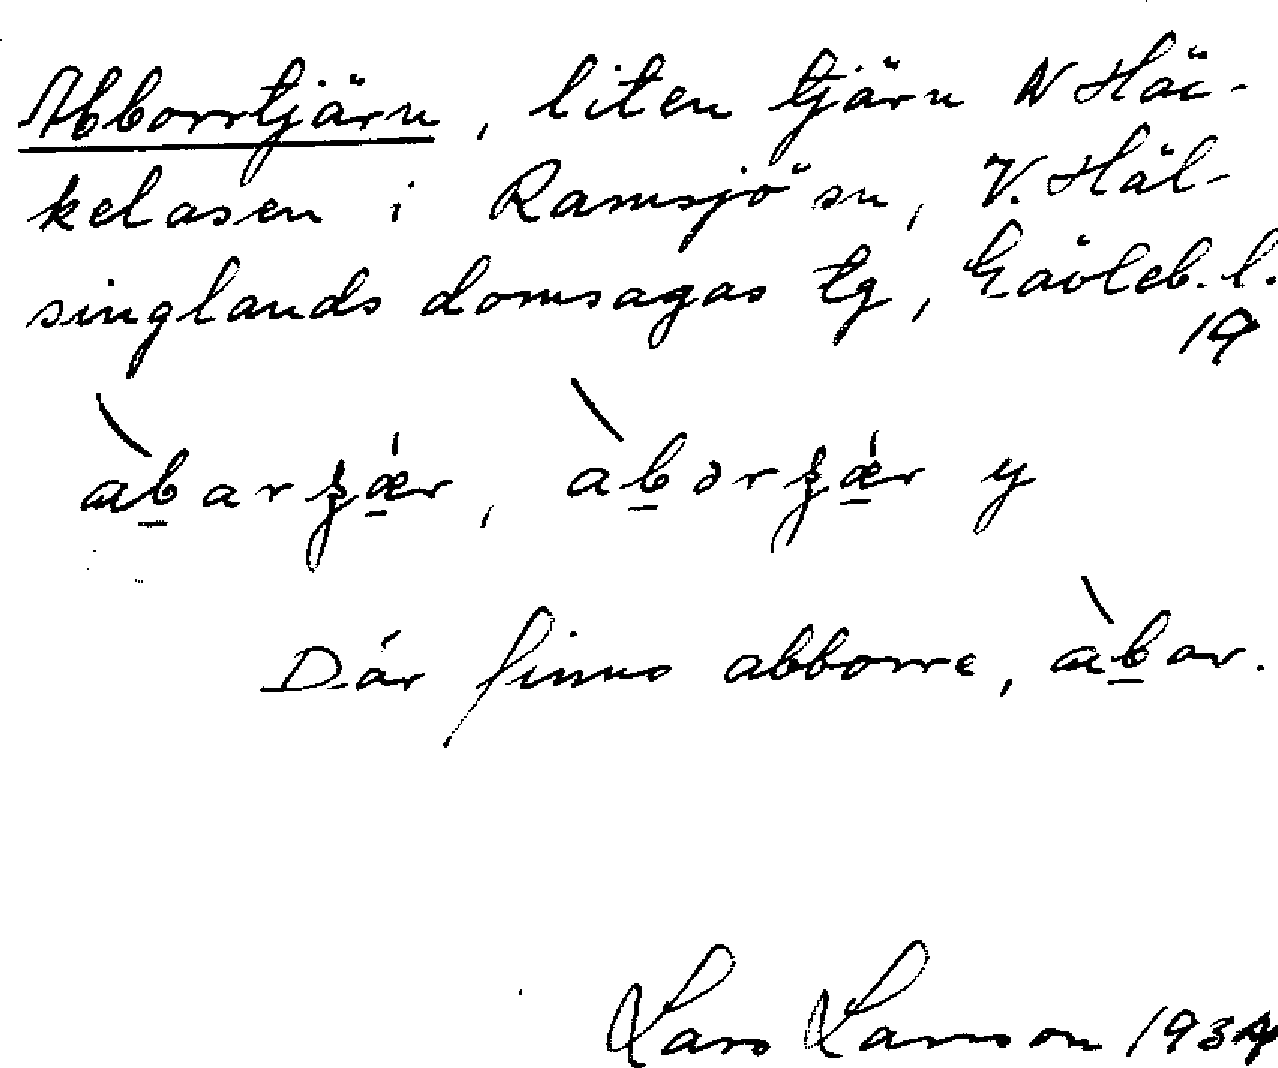 Abborrtjärn, liten tjärn N Häc-
kelasen i Ramsjö sn, V. Häl-
singlands domsagas tg, Gävleb. l.
19
Där finns abborre,
Lars Larsson 1934